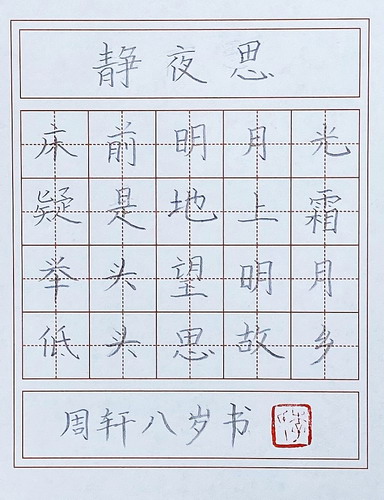 静夜思
床前明月光
疑是地上霜
举头望明月
低头思故乡
周轩八岁书